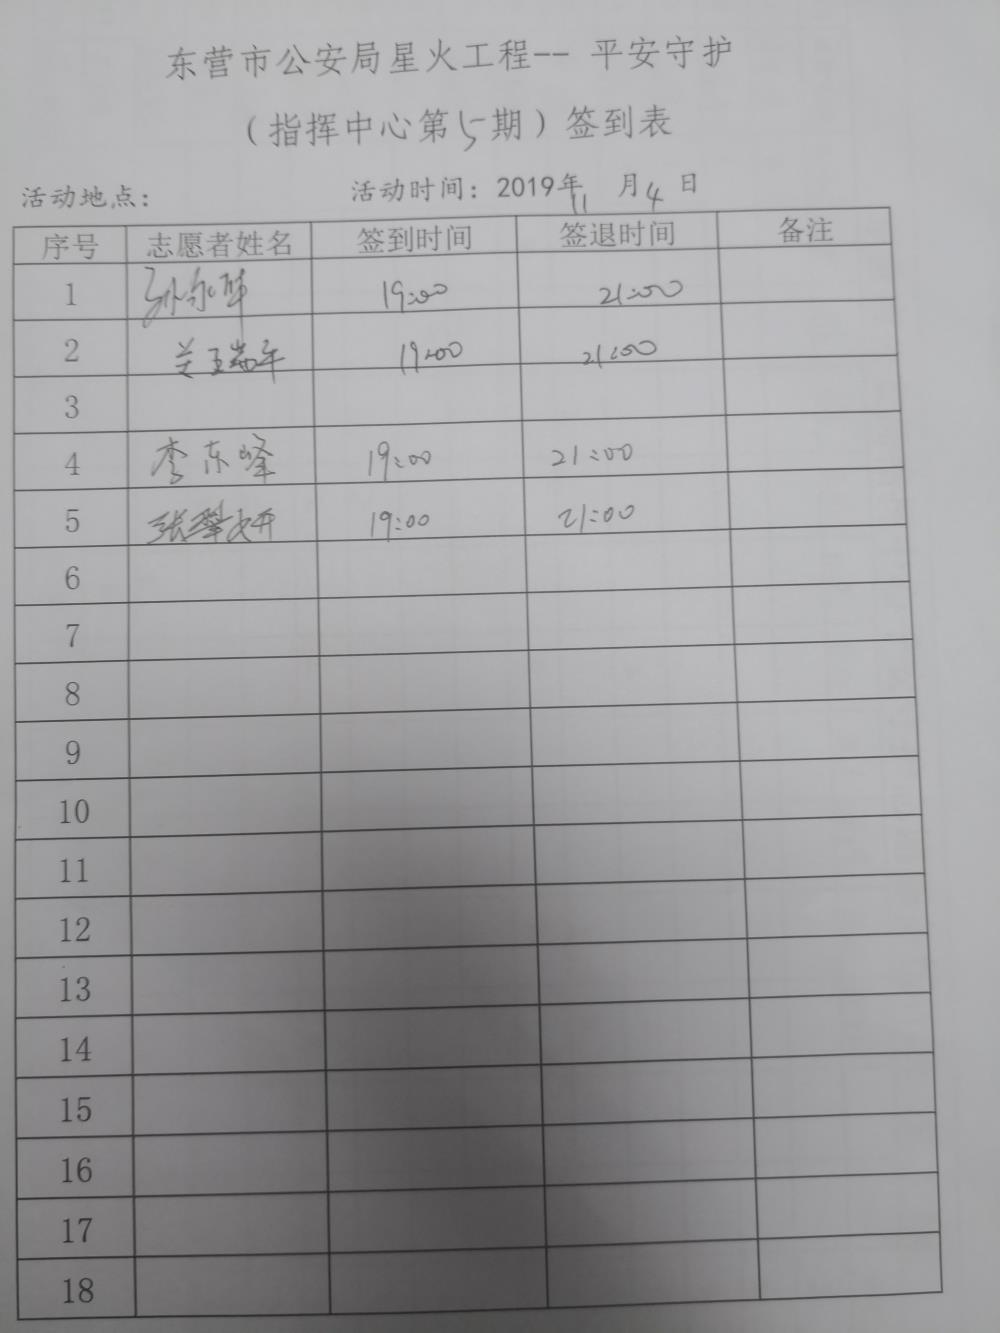 东营市公安局星火工程-- 平安守护
（指挥中心第5期）签到表
活动地点： 活动时间：2019年11月4日
序号 志愿者姓名 签到时间 签退时间 备注
1 孙 19:00 21:00
2 关玉端午 19:00 21:00
3
4 李东峰 19:00 21:00
5 张翠妍 19:00 21:00
6
7
8
9
10
11
12
13
14
15
16
17
18